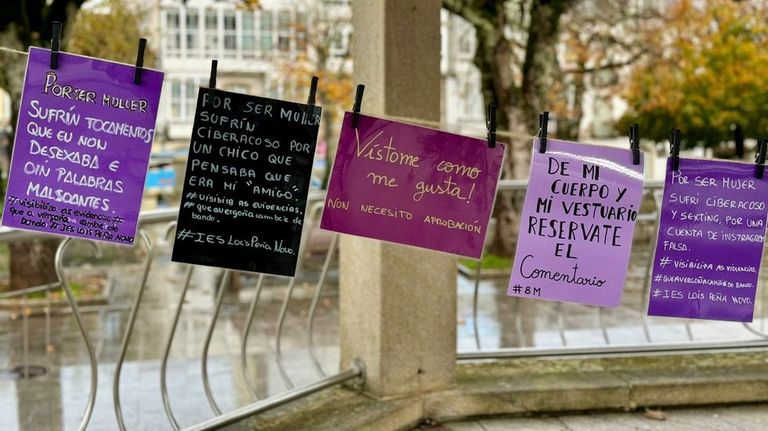 POR SER MULLER
SUFRÍN TOCAMENTOS
QUE EU NON
DESEXABA E
OIN PALABRAS
MALSOANTES.
#visibiliza as evidencias
#que a vergoña cambie de
bando.
#IES Lois Peña Novo
POR SER MULLER
SUFRÍN
CIBERACOSO POR
UN CHICO QUE
PENSABA QUE
ERA MI "AMIGO".
#VISIBILIZA AS EVIDENCIAS.
#QUE A VERGOÑA CAMBIE DE
BANDO.
#IES LOIS PEÑA NOVO.
Vístome como
me gusta!
NON NECESITO APROBACIÓN
DE MI
CUERPO Y
MI VESTUARIO
RESERVATE
EL
Comentario
#8M
POR SER MUJER
SUFRÍ CIBERACOSO
Y SEXTING, POR UNA
CUENTA DE INSTRAGRAM
FALSA.
#VISIBILIZA AS VIOLENCIAS.
#QUE A VERGOÑA CAMBIE DE BANDO.
#IES LOIS PEÑA NOVO.